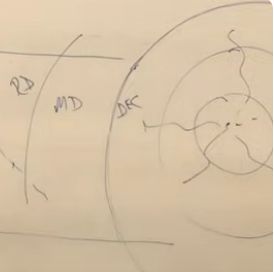 RD
MD
DEC